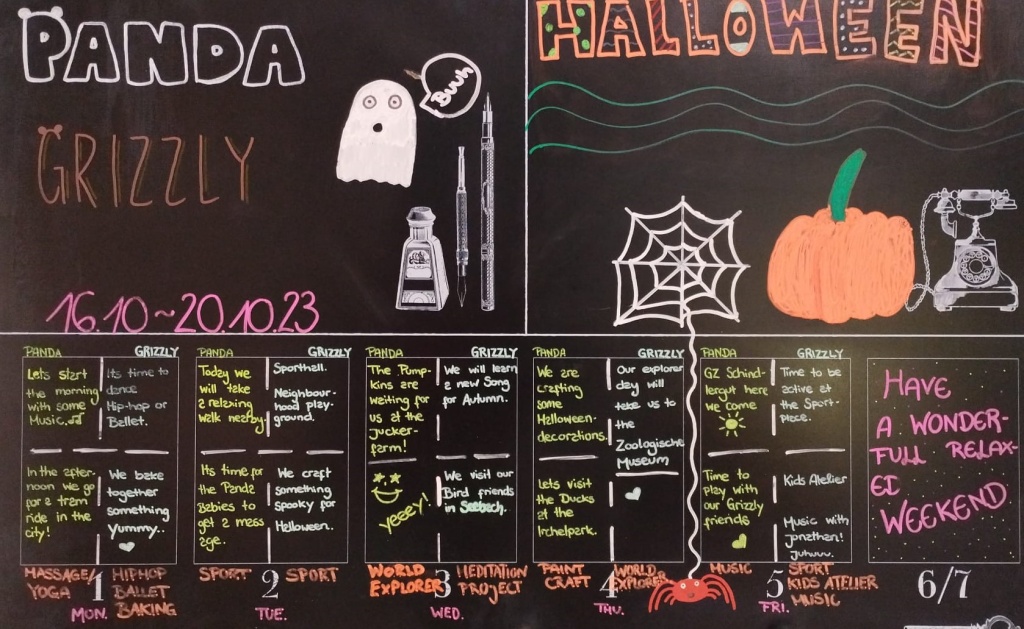 PANDA
GRIZZLY
Buuh
16.10~20.10.23
HALLOWEEN
PANDA
Lets start
the morning
with some
Music.
In the after-
noon we go
for a tram
ride in the
city!
GRIZZLY
Its time to
dance
Hip-hop or
Ballet.
We bake
together
something
Yummy..
MASSAGE/
YOGA
HIPHOP
BALLET
BAKING
1
MON.
PANDA
Today we
will take
a relaxing
walk nearby.
Its time for
the Panda
Babies to
get a mess
age.
GRIZZLY
Sporthall.
Neighbour-
hood play-
ground.
We craft
something
spooky for
Halloween.
SPORT
2
SPORT
TUE.
PANDA
The Pump-
kins are
waiting for
us at the
jucker-
farm!
yeeey!
GRIZZLY
We will learn
a new Song
for Autumn.
We visit our
Bird friends
in Seebach.
WORLD
EXPLORER
3
MEDITATION
PROJECT
WED.
PANDA
We are
crafting
some
Halloween-
decorations.
Lets visit
the Ducks
at the
Irchelpark.
GRIZZLY
Our explorer
day will
take us to
the
Zoologische
Museum
PAINT
CRAFT
4
WORLD
EXPLORER
THU.
PANDA
GZ Schind-
lergut here
we come
Time to
play with
our Grizzly
friends
GRIZZLY
Time to be
active at
the Sport-
place.
Kids Atelier
Music with
jonathan!
juhuuu.
MUSIC
5
SPORT
KIDS ATELIER
MUSIC
FRI.
HAVE
A WONDER-
FULL RELAX-
ED
WEEKEND
6/7